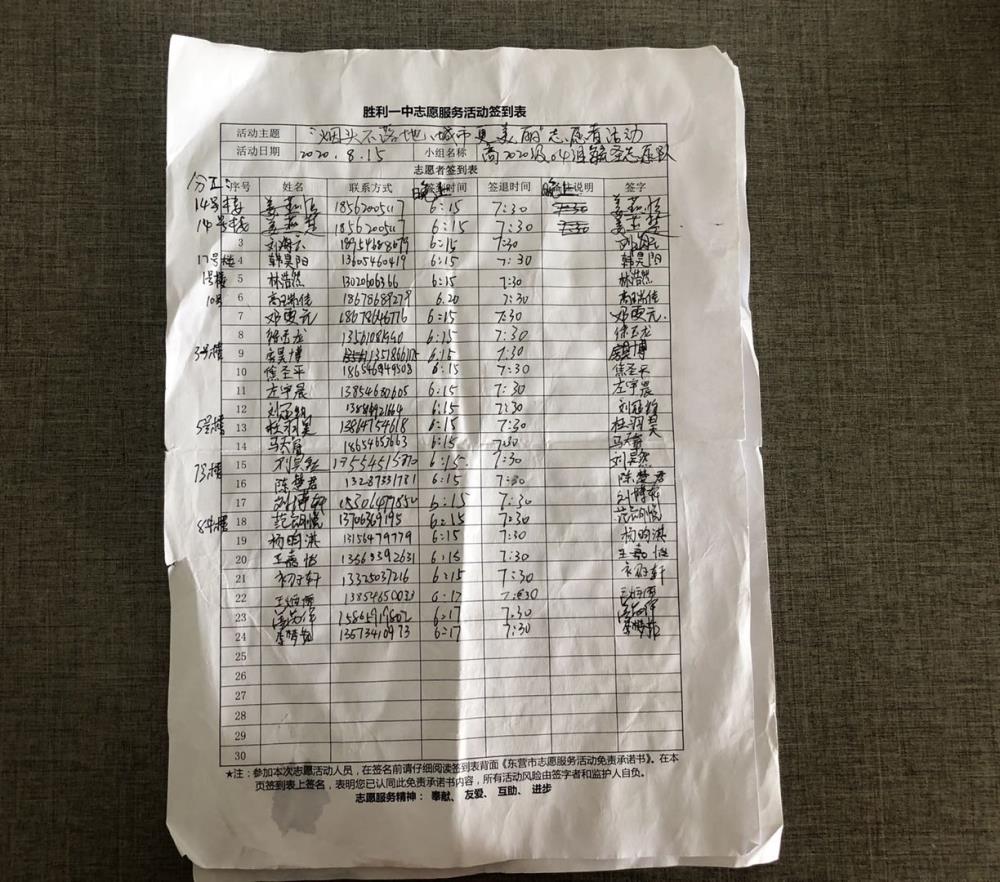 胜利一中志愿服务活动签到表
活动主题 "烟头不落地,城市更美丽"志愿者活动
活动日期 2020.8.15 小组名称 高2020级04班 志愿队
志愿者签到表
分工: 序号 姓名 联系方式 晚上 签到时间 签退时间 晚上 说明 签字
14号楼 姜 18562005117 6:15 7:30 7:30 姜
14号楼 姜 18562005117 6:15 7:30 7:30 姜
3 刘海 6:15 7:30 刘海
17号楼 4 韩昊阳 13605460419 6:15 7:30 韩昊阳
1号楼 5 林浩然 13020606366 6:15 7:30 林浩然
10号 6 高瑞佳 18678689279 6.20 7:30 高瑞佳
7 邓雯元 18678646776 6:15 7:30 邓雯元.
8 徐玉龙 6:15 7:30 徐玉龙
3号楼 9 昊博 6:15 7:30 博
10 焦圣平 186546949508 6:15 7:30 焦圣平
11 左宇晨 13854630605 6:15 7:30 左宇晨
12 刘 6:15 7:30 刘
5号楼 13 杜羽昊 13814754618 6:15 7:30 杜羽昊
14 马 18654657663 6:15 7:30 马
7号楼 15 刘昊然 6:15. 7:30 刘昊然
16 陈楚君 13287331731 6:15 7:30 陈楚君
17 刘博轩 6:15 7:30 刘博轩
8号楼 18 范 13706369195 6:15 7:30 范
19 杨昀淇 13156479779 6:15 7:30 杨昀淇
20 王嘉怡 13563392631 6:15 7:30 王嘉怡
21 轩 13325037216 6:15 7:30 轩
22 王 13854650033 6:17 7:30 王
23 15865919802 6:17 7:30
24 李梦茹 13573410973 6:17 7:30 李梦茹
25
26
27
28
29
30
★注:参加本次志愿活动人员,在签名前请仔细阅读签到表背面《东营市志愿服务活动免责承诺书》。在本
页签到表上签名,表明您已认同此免责承诺书内容,所有活动风险由签字者和监护人自负。
志愿服务精神: 奉献、 友爱、 互助、 进步